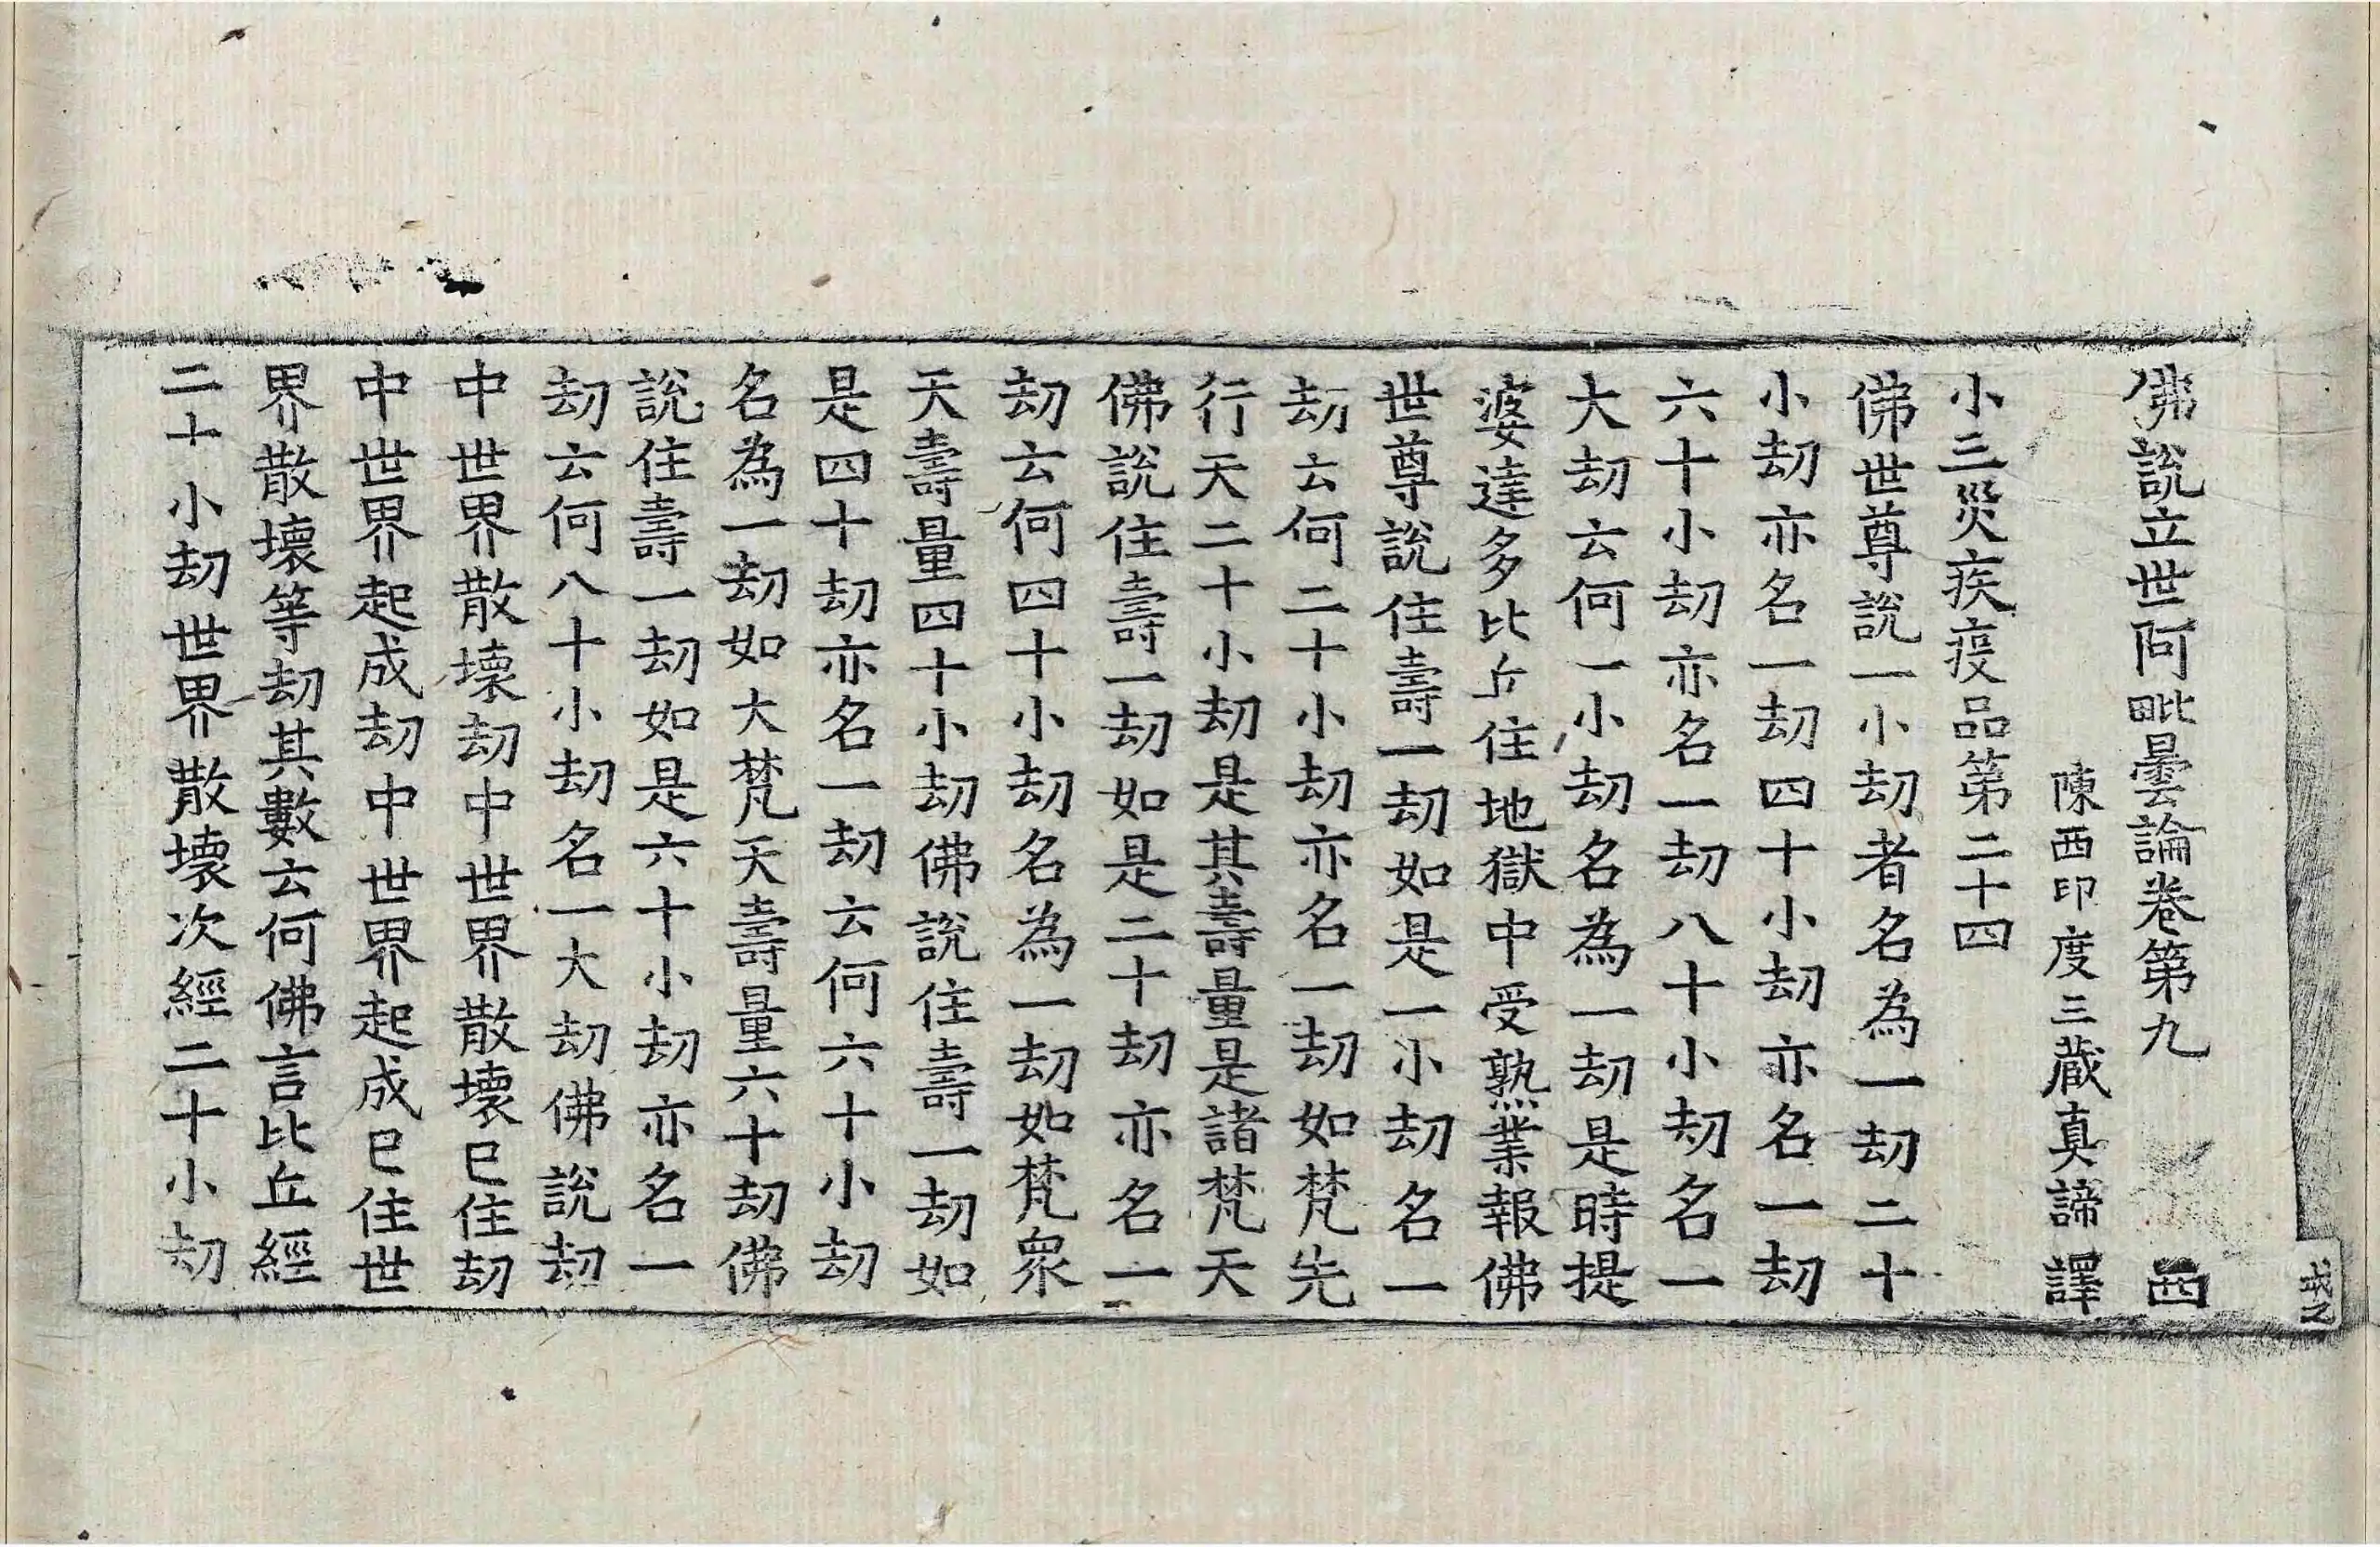 佛說立世阿毗曇論卷第九 西
陳西印度三藏真諦譯
小三災疾疫品第二十四
佛世尊說一小劫者名為一劫二十
小劫亦名一劫四十小劫亦名一劫
六十小劫亦名一劫八十小劫名一
大劫云何一小劫名為一劫是時提
婆達多比丘住地獄中受熟業報佛
世尊說住壽一劫如是一小劫名一
劫云何二十小劫亦名一劫如梵先
行天二十小劫是其壽量是諸梵天
佛說住壽一劫如是二十劫亦名一
劫云何四十小劫名為一劫如梵眾
天壽量四十小劫佛說住壽一劫如
是四十劫亦名一劫云何六十小劫
名為一劫如大梵天壽量六十劫佛
說住壽一劫如是六十小劫亦名一
劫云何八十小劫名一大劫佛說劫
中世界散壞劫中世界散壞已住劫
中世界起成劫中世界起成已住世
界散壞等劫其數云何佛言比丘經
二十小劫世界散壞次經二十小劫